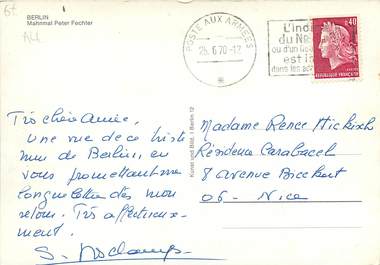 BERLIN
Mahnmal Peter Fechter
POSTE AUX ARMÉES
25.6.70-12
L'indi
du N
ou d'un bu
est l
dans les ad
0,40
REPUBLIQUE FRANÇAISE
Très chère amie,
Une vue de ce triste
mur de Berlin, en
vous promettant une
longue lettre dès mon
retour. Très affectueuse-
ment.
Kunst und Bild, 1 Berlin 12
Madame Renée
Résidence Carabacel
8 Avenue Bieckert
06 - Nice